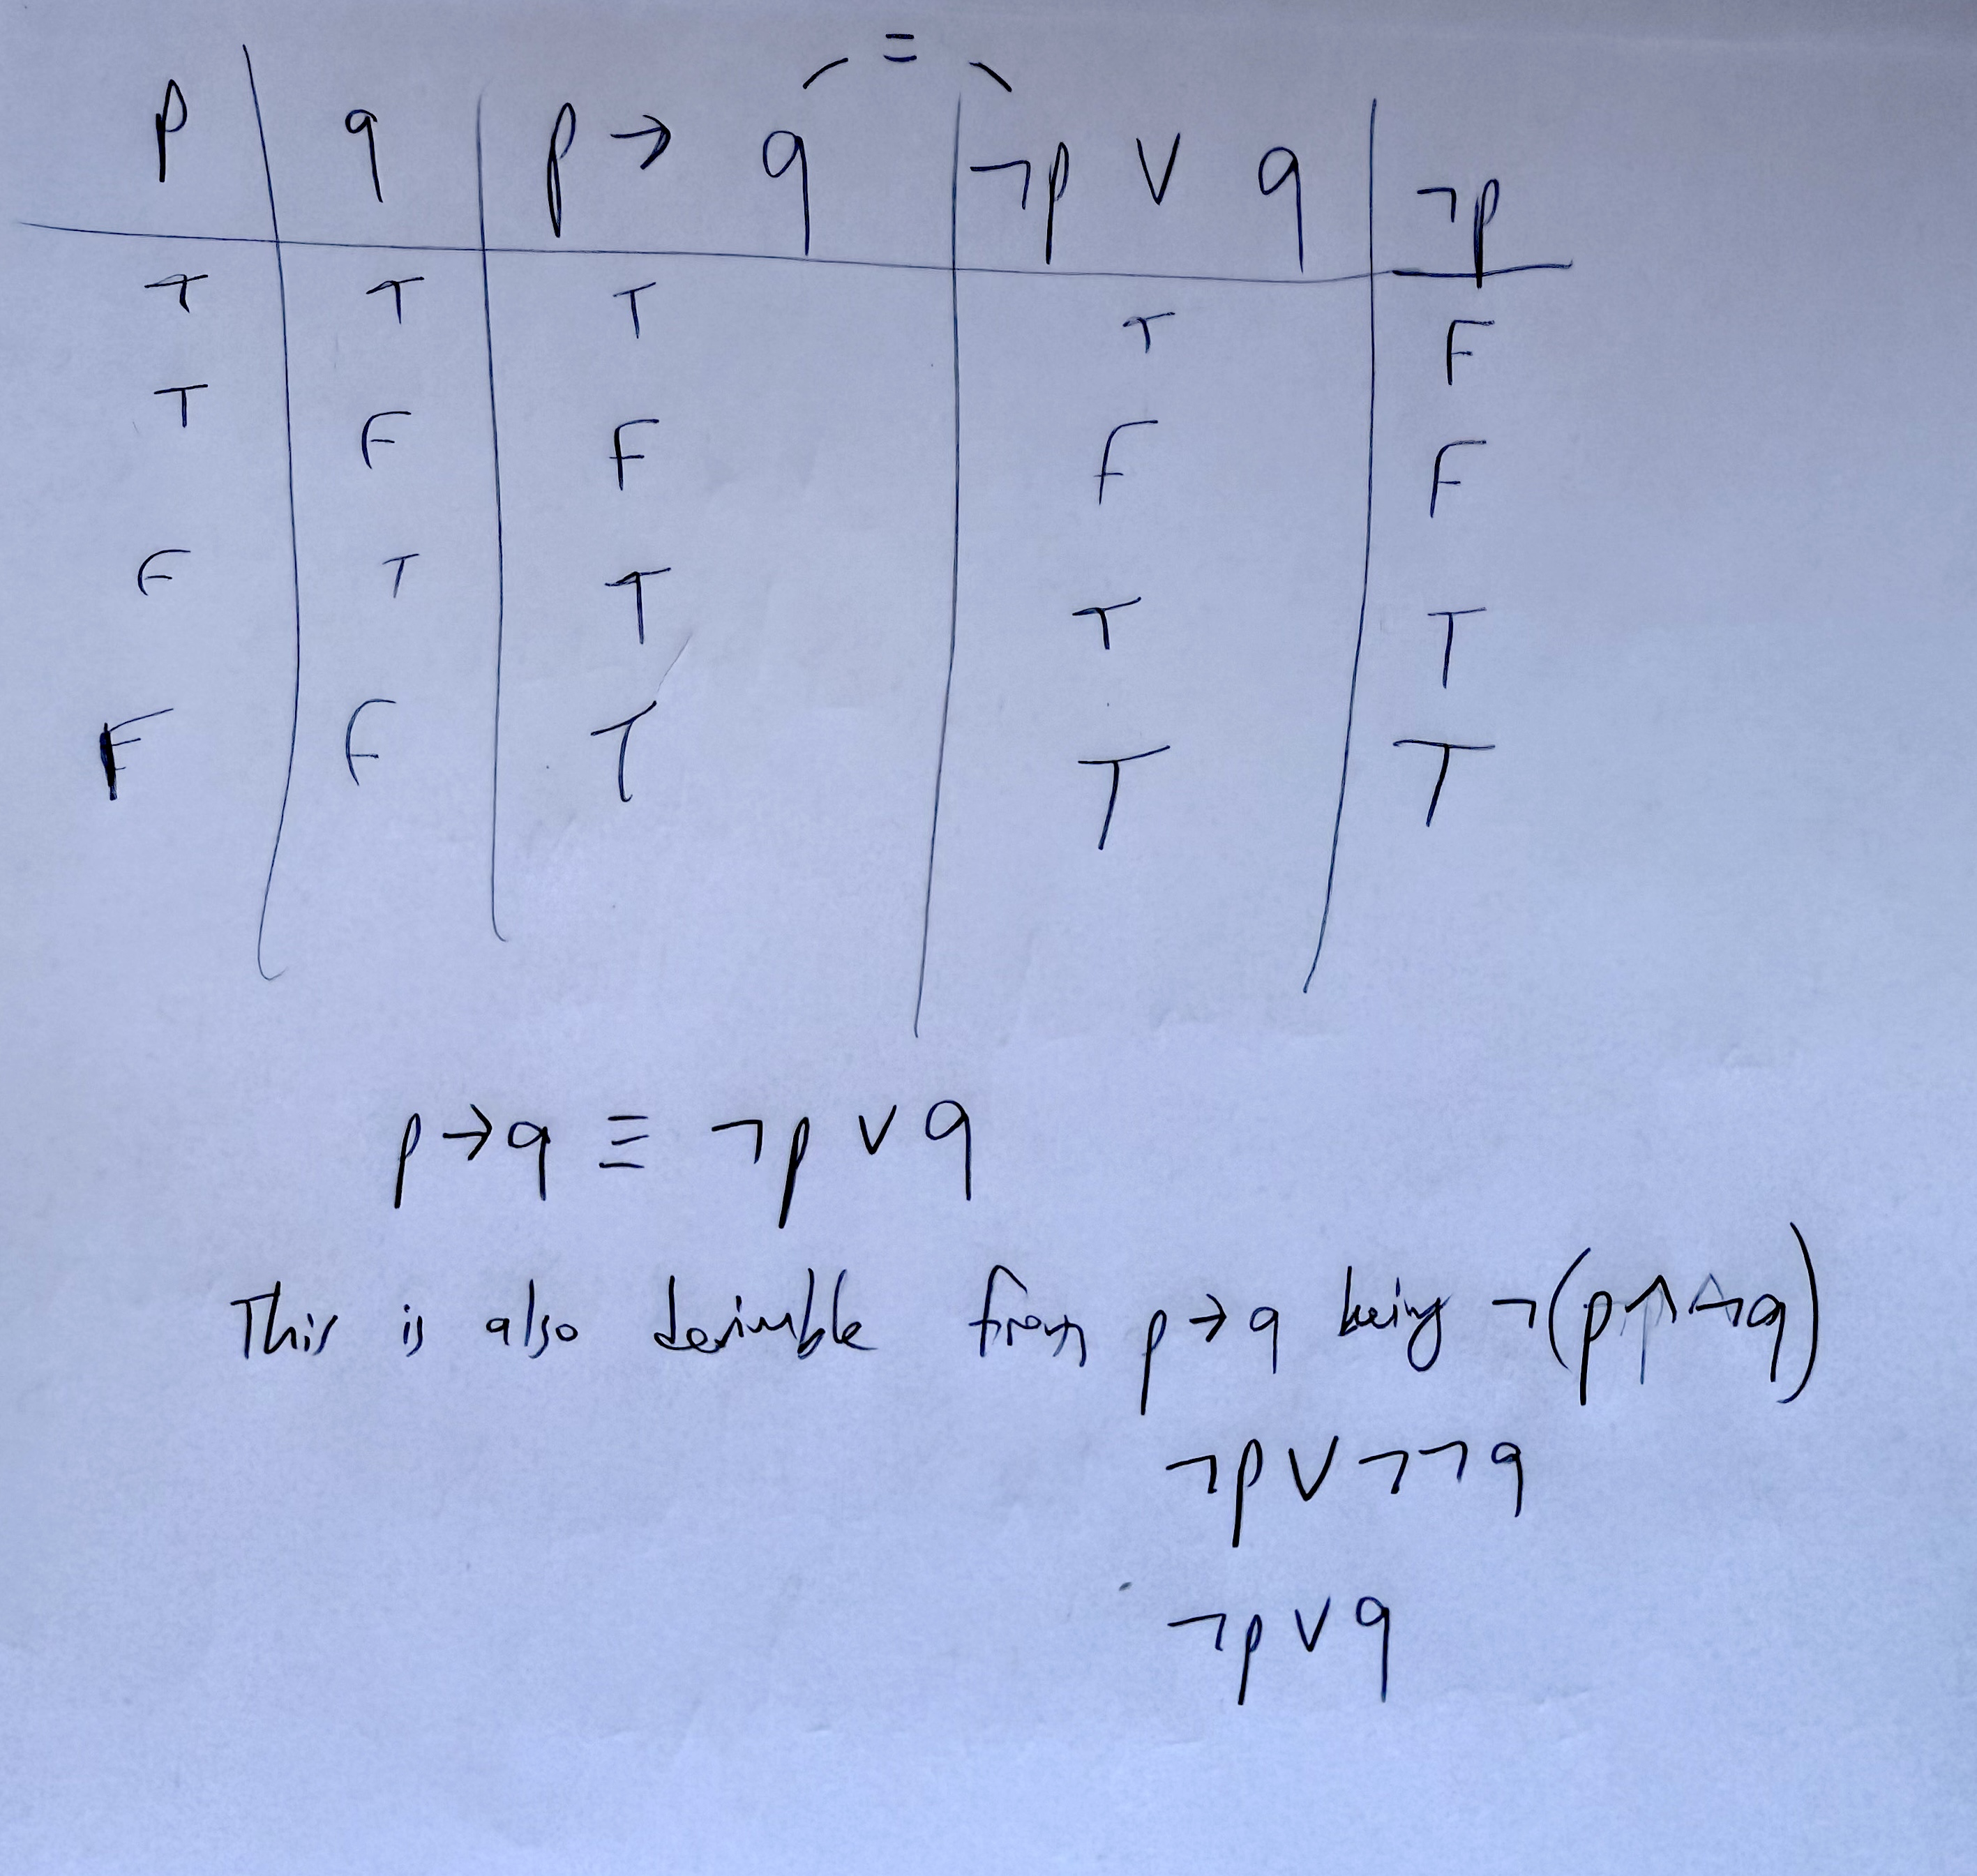 =
p q p → q ¬p ∨ q ¬p
T T T T F
T F F F F
F T T T T
F F T T T
p → q ≡ ¬p ∨ q
This is also derivable from p → q being ¬(p ∧ ¬q)
¬p ∨ ¬¬q
¬p ∨ q